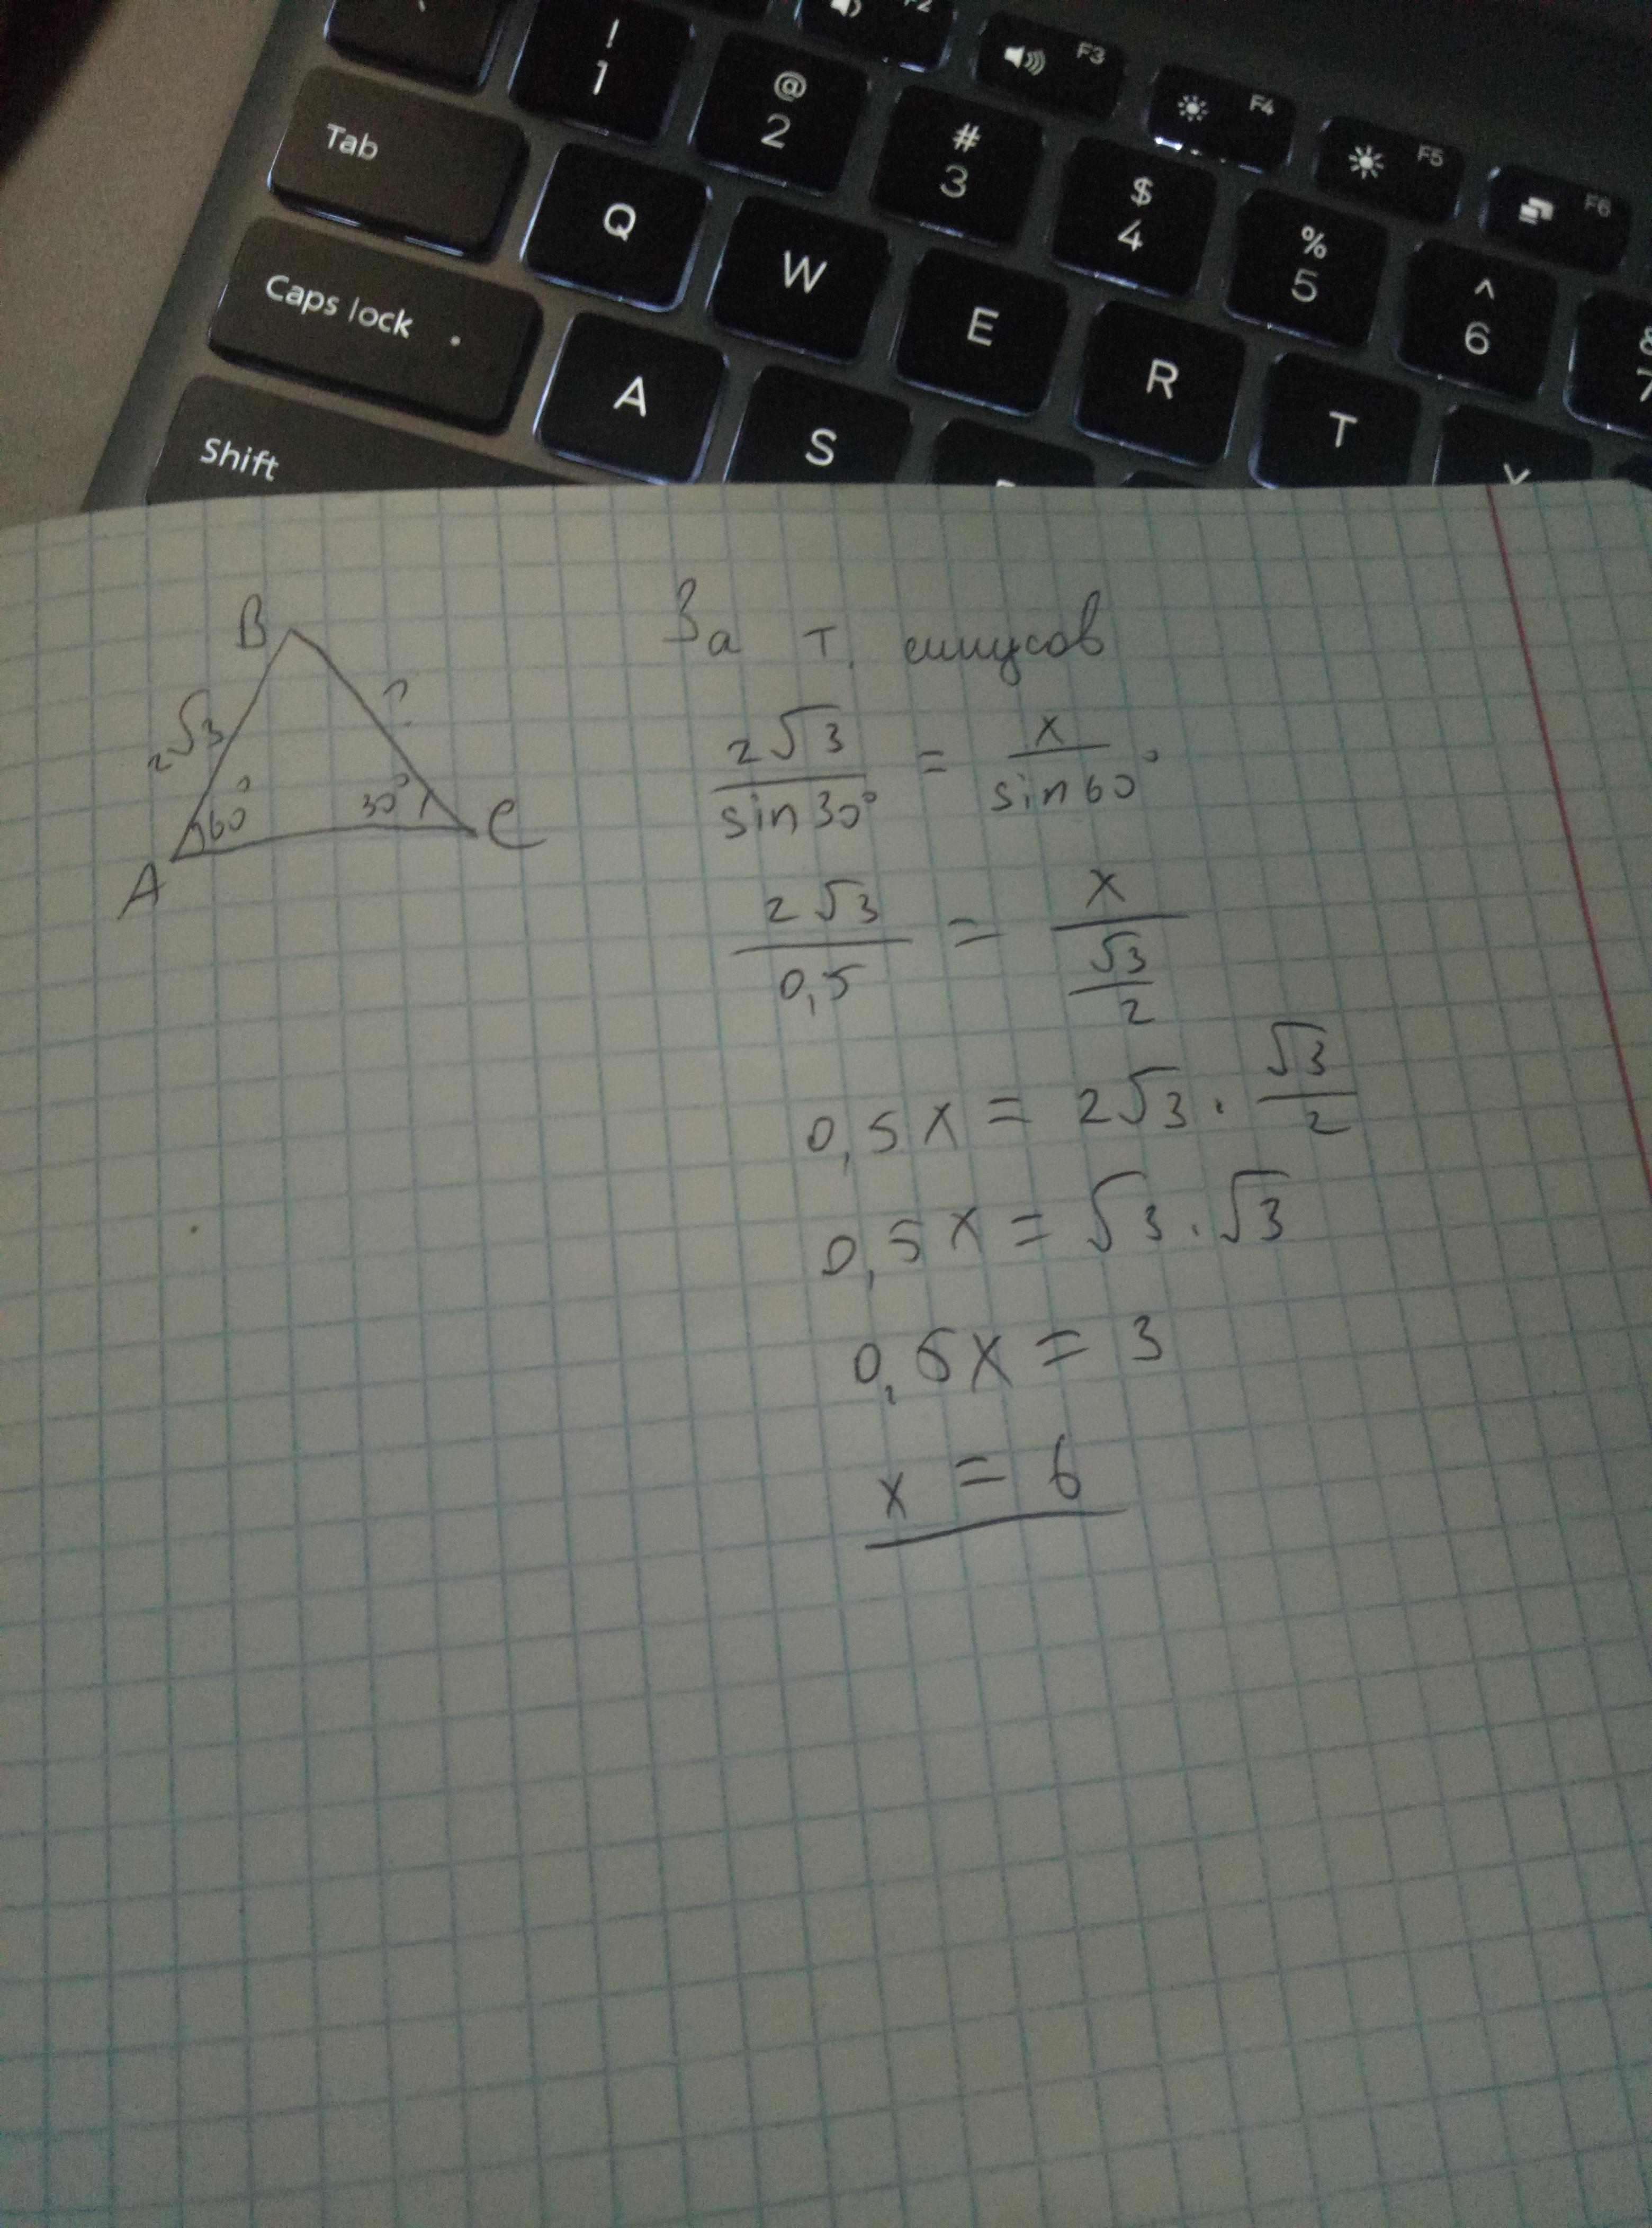 F2
F3
F4
F5
F6
!
1
@
2
#
3
$
4
%
5
^
6
7
Tab
Q
W
E
R
T
Y
Caps lock
A
S
Shift
B
2√3
?
60°
30°
A
C
За т. синусов
2√3 / sin30° = x / sin60°
2√3 / 0,5 = x / (√3 / 2)
0,5x = 2√3 · √3 / 2
0,5x = √3 · √3
0,5x = 3
x = 6